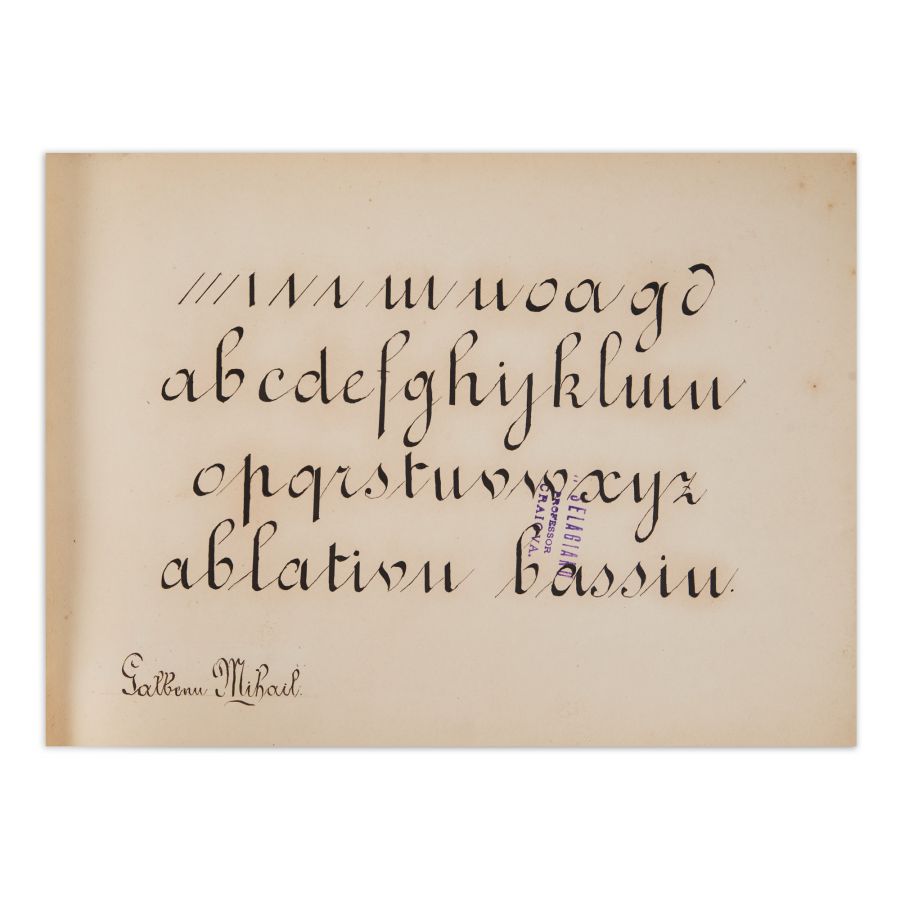 ııııııı m u o a g d
abcdefghijklmn
opqrstuvwxyz
ablativu bassin.
SELAGIANO
PROFESSOR
CRAIOVA.
Galbenu Mihail.